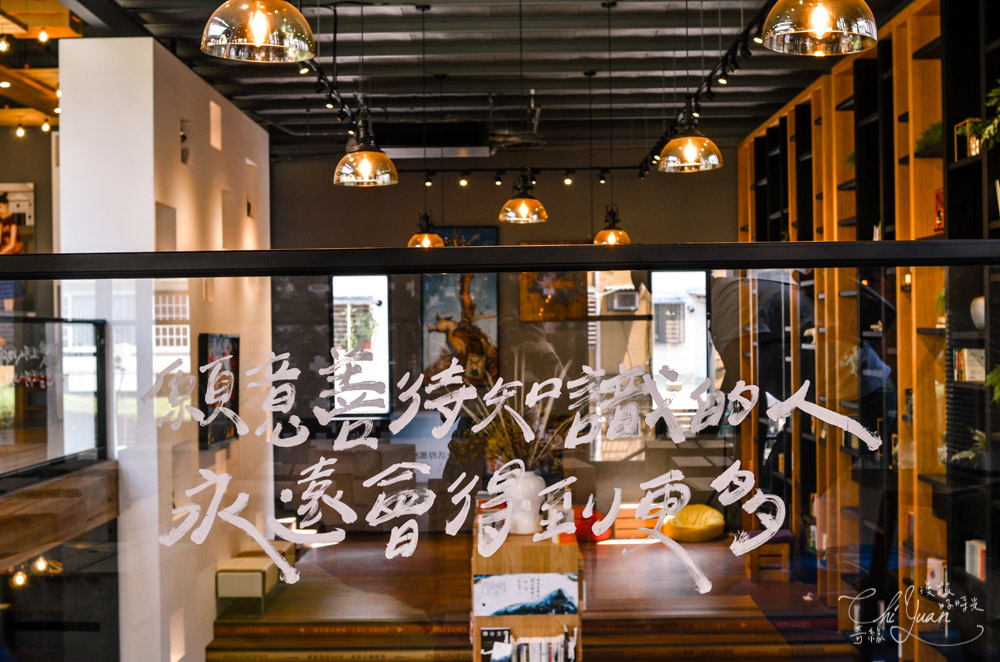 願意善待知識的人
永遠會得到更多
Chi Yuan
奇緣
漫旅
好時光